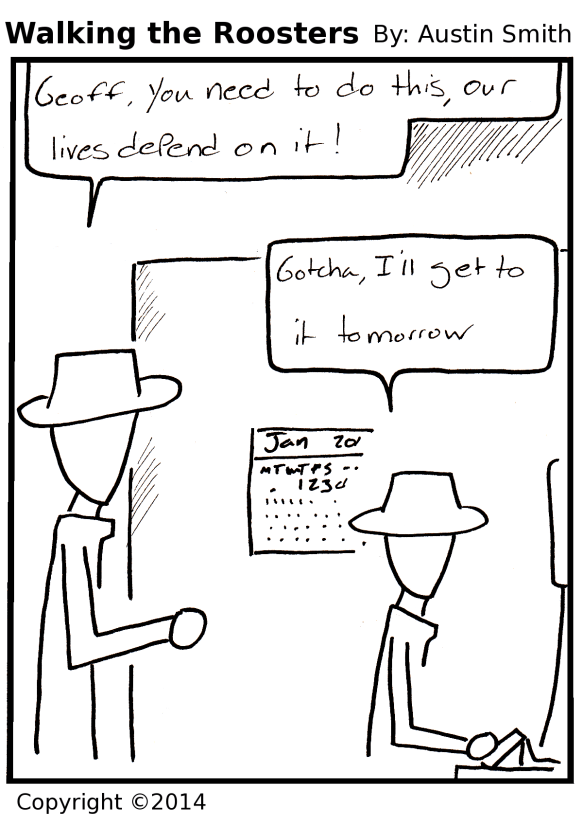 Walking the Roosters By: Austin Smith
Geoff, you need to do this, our
lives depend on it!
Gotcha, I'll get to
it tomorrow
Jan 20
MTWTFS
123
Copyright ©2014